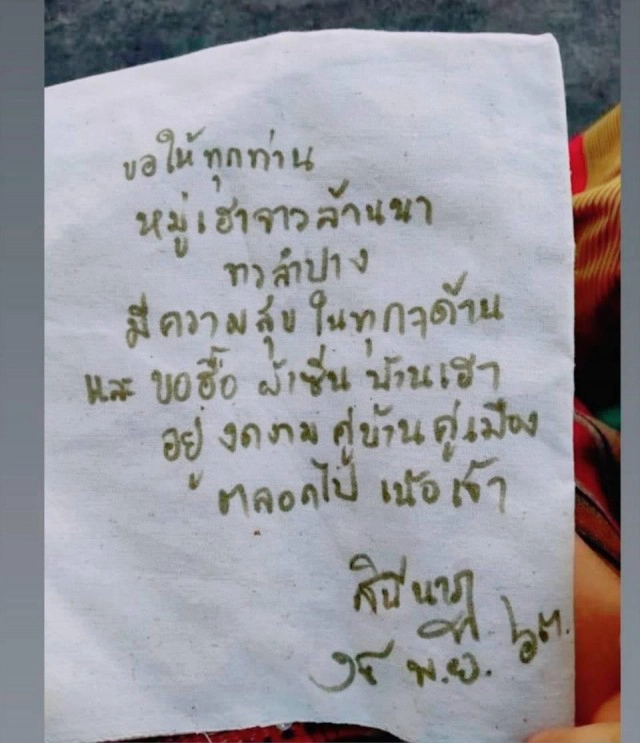 ขอให้ทุกท่าน
หมู่เฮาจาวล้านนา
ลำปาง
มีความสุข ในทุกๆด้าน
และ ขอฮื้อ ผ้าซิ่น บ้านเฮา
อยู่ งดงาม คู่บ้าน คู่เมือง
ตลอดไป เน้อเจ้า
สินีนาฏ
พ.ย. ๖๓.